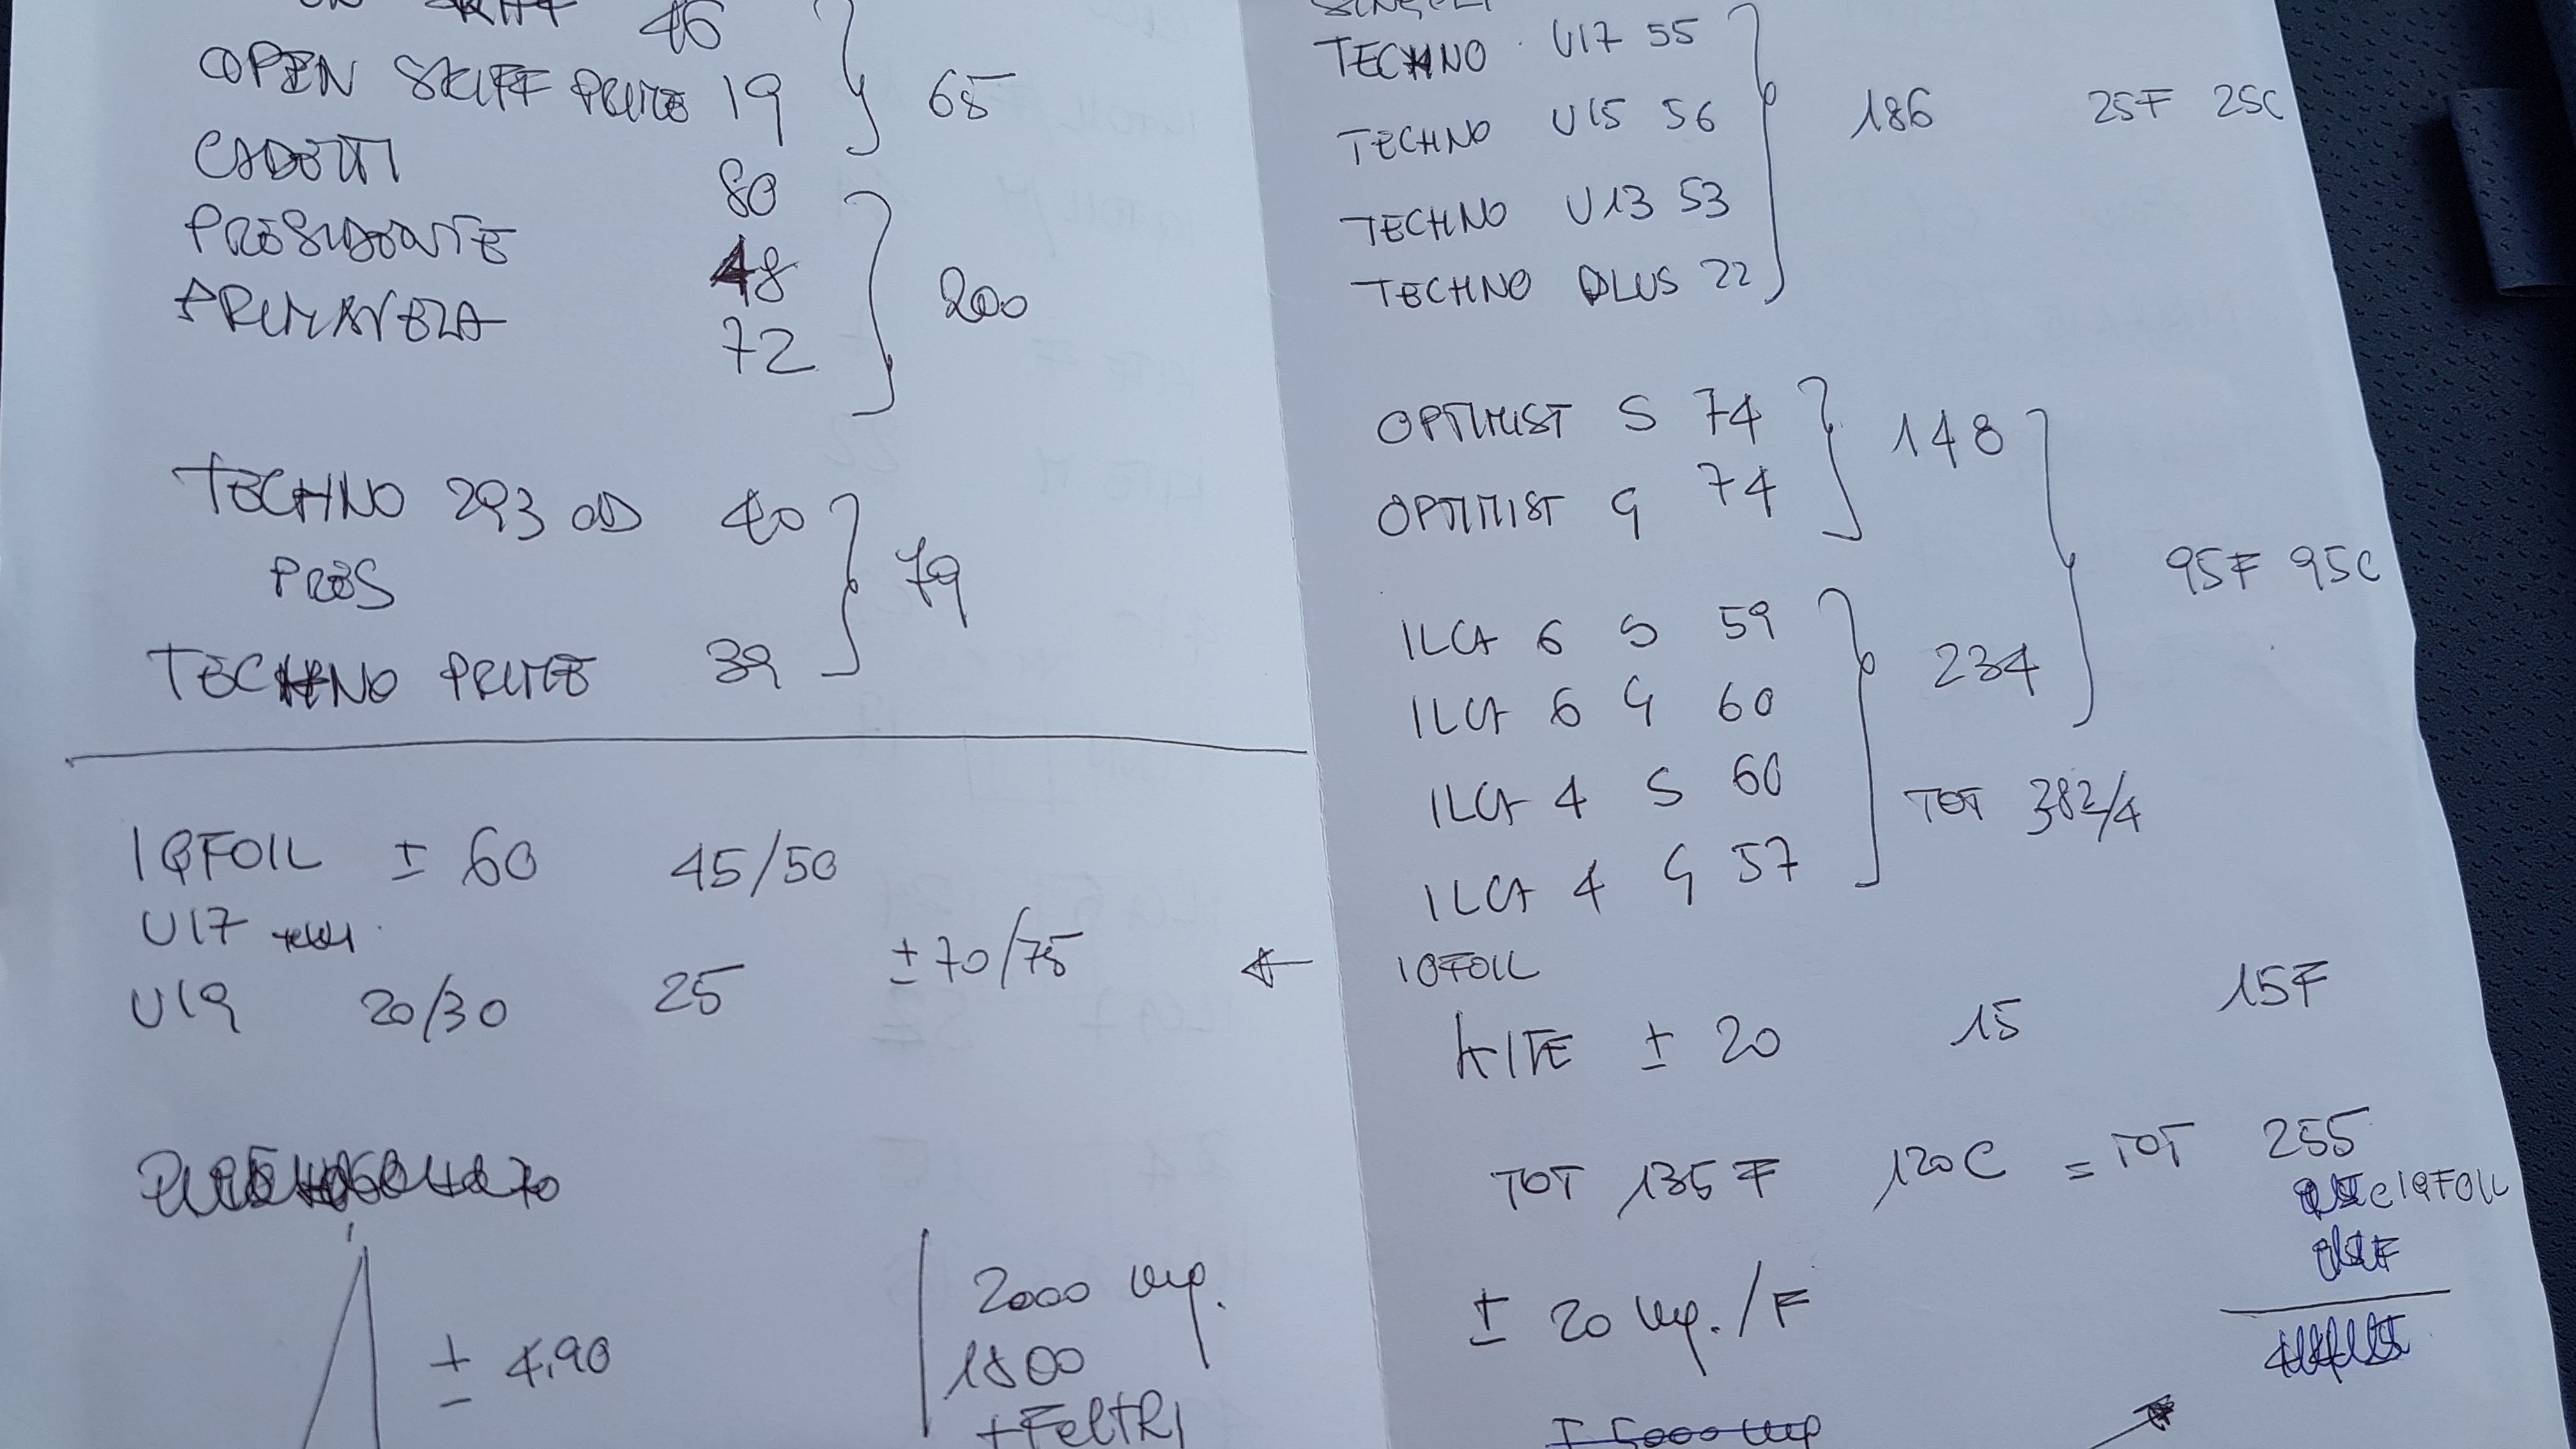 SKIFF 46
OPEN SKIFF PRIME 19
65
CADETTI 80
PRESIDENTE 48
PRIMAVELA 72
200
TECHNO 293 OD 40
PRES
79
TECHNO PRIME 39
IQFOIL ± 60 45/50
U17
U19 20/30 25 ± 70/75 ←
± 4,90
2000
1800
+ FeltRI
TECHNO U17 55
TECHNO U15 56
186 25F 25C
TECHNO U13 53
TECHNO PLUS 22
OPTIMIST S 74
148
OPTIMIST G 74
95F 95C
ILCA 6 S 59
ILCA 6 G 60
234
ILCA 4 S 60
TOT 382/4
ILCA 4 G 57
IQFOIL
KITE ± 20 15 15F
TOT 135 F 120 C = TOT 255
IQFOIL
± 20 /F
5000